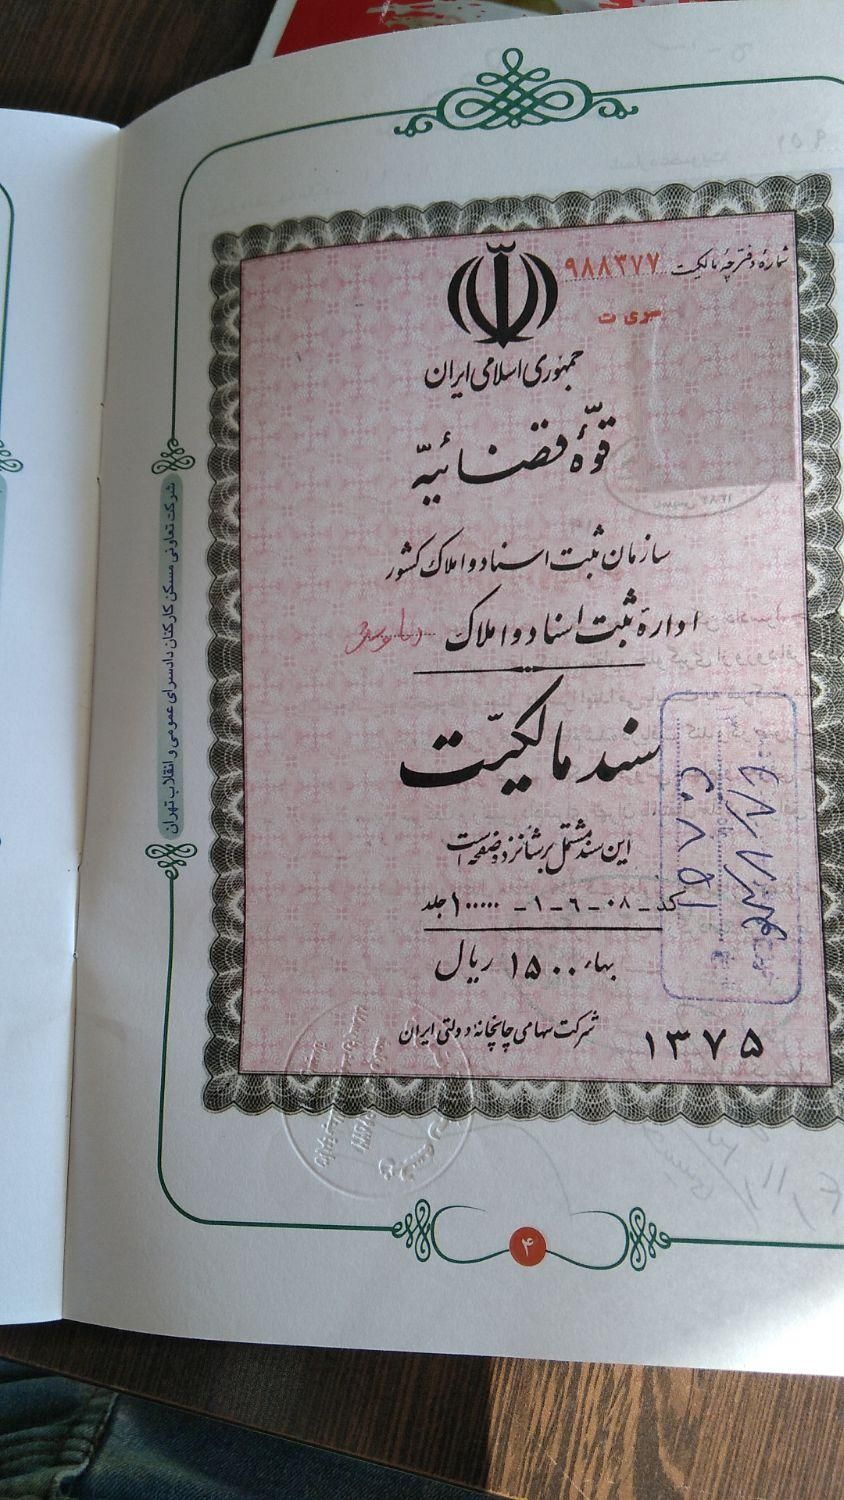 شمارهٔ دفترچهٔ مالکیت ۹۸۸۳۷۷
سری ت
جمهوری اسلامی ایران
قوّهٔ قضائیّه
سازمان ثبت اسناد و املاک کشور
ادارهٔ ثبت اسناد و املاک
سند مالکیّت
این سند مشتمل بر شانزده صفحه است
کد ـ ۰۸ ـ ۶ ـ ۱ ـ ۱۰۰۰۰۰ جلد
بهاء ۱۵۰۰ ریال
شرکت سهامی چاپخانه دولتی ایران
۱۳۷۵
شرکت تعاونی مسکن کارکنان دادسرای عمومی و انقلاب تهران
۴